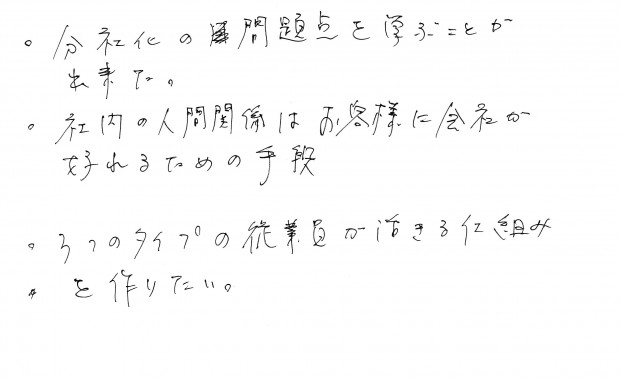 。分社化の問題点を学ぶことが
出来た。
・社内の人間関係はお客様に会社が
好れるための手段
。3つのタイプの従業員が活きる仕組み
を作りたい。